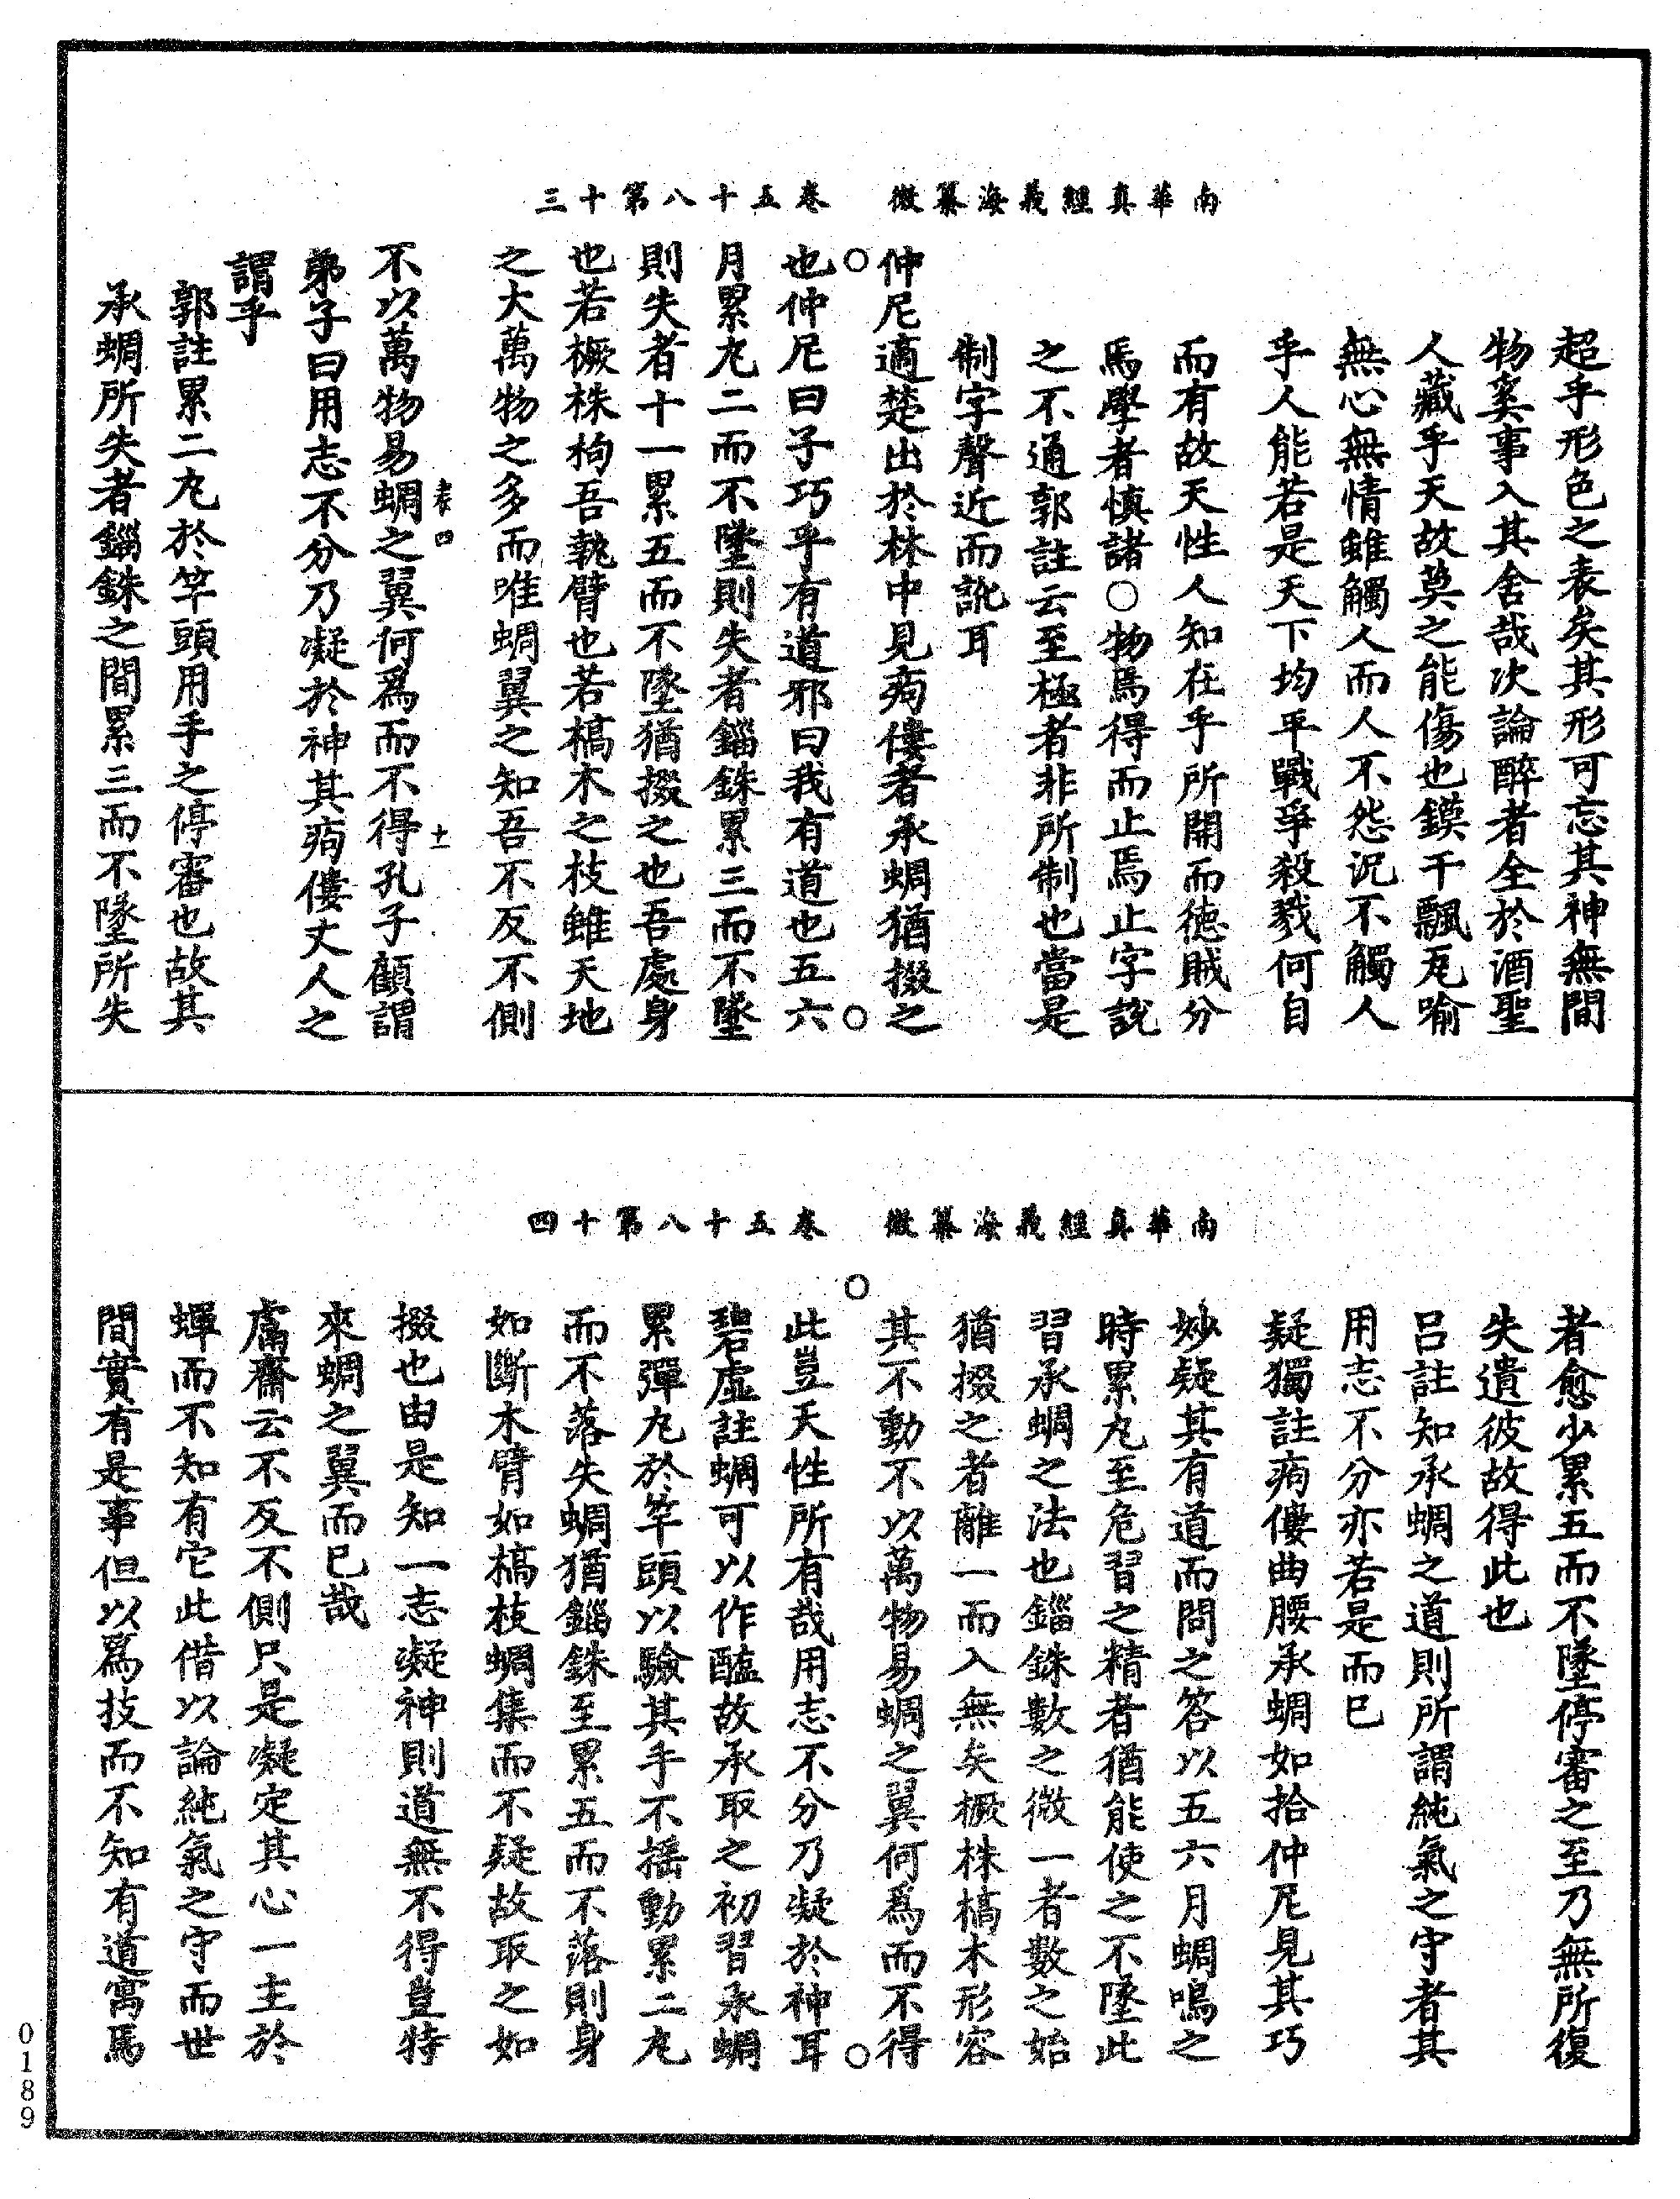 南華真經義海纂微　卷五十八第十三
超乎形色之表矣其形可忘其神無間
物奚事入其舍哉次論醉者全於酒聖
人藏乎天故莫之能傷也鏌干飄瓦喻
無心無情雖觸人而人不怨況不觸人
乎人能若是天下均平戰爭殺戮何自
而有故天性人知在乎所開而德賊分
焉學者慎諸○物焉得而止焉止字說
之不通郭註云至極者非所制也當是
制字聲近而訛耳
仲尼適楚出於林中見痀僂者承蜩猶掇之
也仲尼曰子巧乎有道邪曰我有道也五六
月累丸二而不墜則失者錙銖累三而不墜
則失者十一累五而不墜猶掇之也吾處身
也若橛株枸吾執臂也若槁木之枝雖天地
之大萬物之多而唯蜩翼之知吾不反不側
不以萬物易蜩之翼何為而不得孔子顧謂
表四　十一
弟子曰用志不分乃凝於神其痀僂丈人之
謂乎
郭註累二丸於竿頭用手之停審也故其
承蜩所失者錙銖之間累三而不墜所失
南華真經義海纂微　卷五十八第十四
者愈少累五而不墜停審之至乃無所復
失遺彼故得此也
呂註知承蜩之道則所謂純氣之守者其
用志不分亦若是而已
疑獨註痀僂曲腰承蜩如拾仲尼見其巧
妙疑其有道而問之答以五六月蜩鳴之
時累丸至危習之精者猶能使之不墜此
習承蜩之法也錙銖數之微一者數之始
猶掇之者離一而入無矣橛株槁木形容
其不動不以萬物易蜩之翼何為而不得
此豈天性所有哉用志不分乃凝於神耳
碧虛註蜩可以作醢故承取之初習承蜩
累彈丸於竿頭以驗其手不搖動累二丸
而不落失蜩猶錙銖至累五而不落則身
如斷木臂如槁枝蜩集而不疑故取之如
掇也由是知一志凝神則道無不得豈特
來蜩之翼而已哉
鬳齋云不反不側只是凝定其心一主於
蟬而不知有它此借以論純氣之守而世
間實有是事但以為技而不知有道寓焉
0189